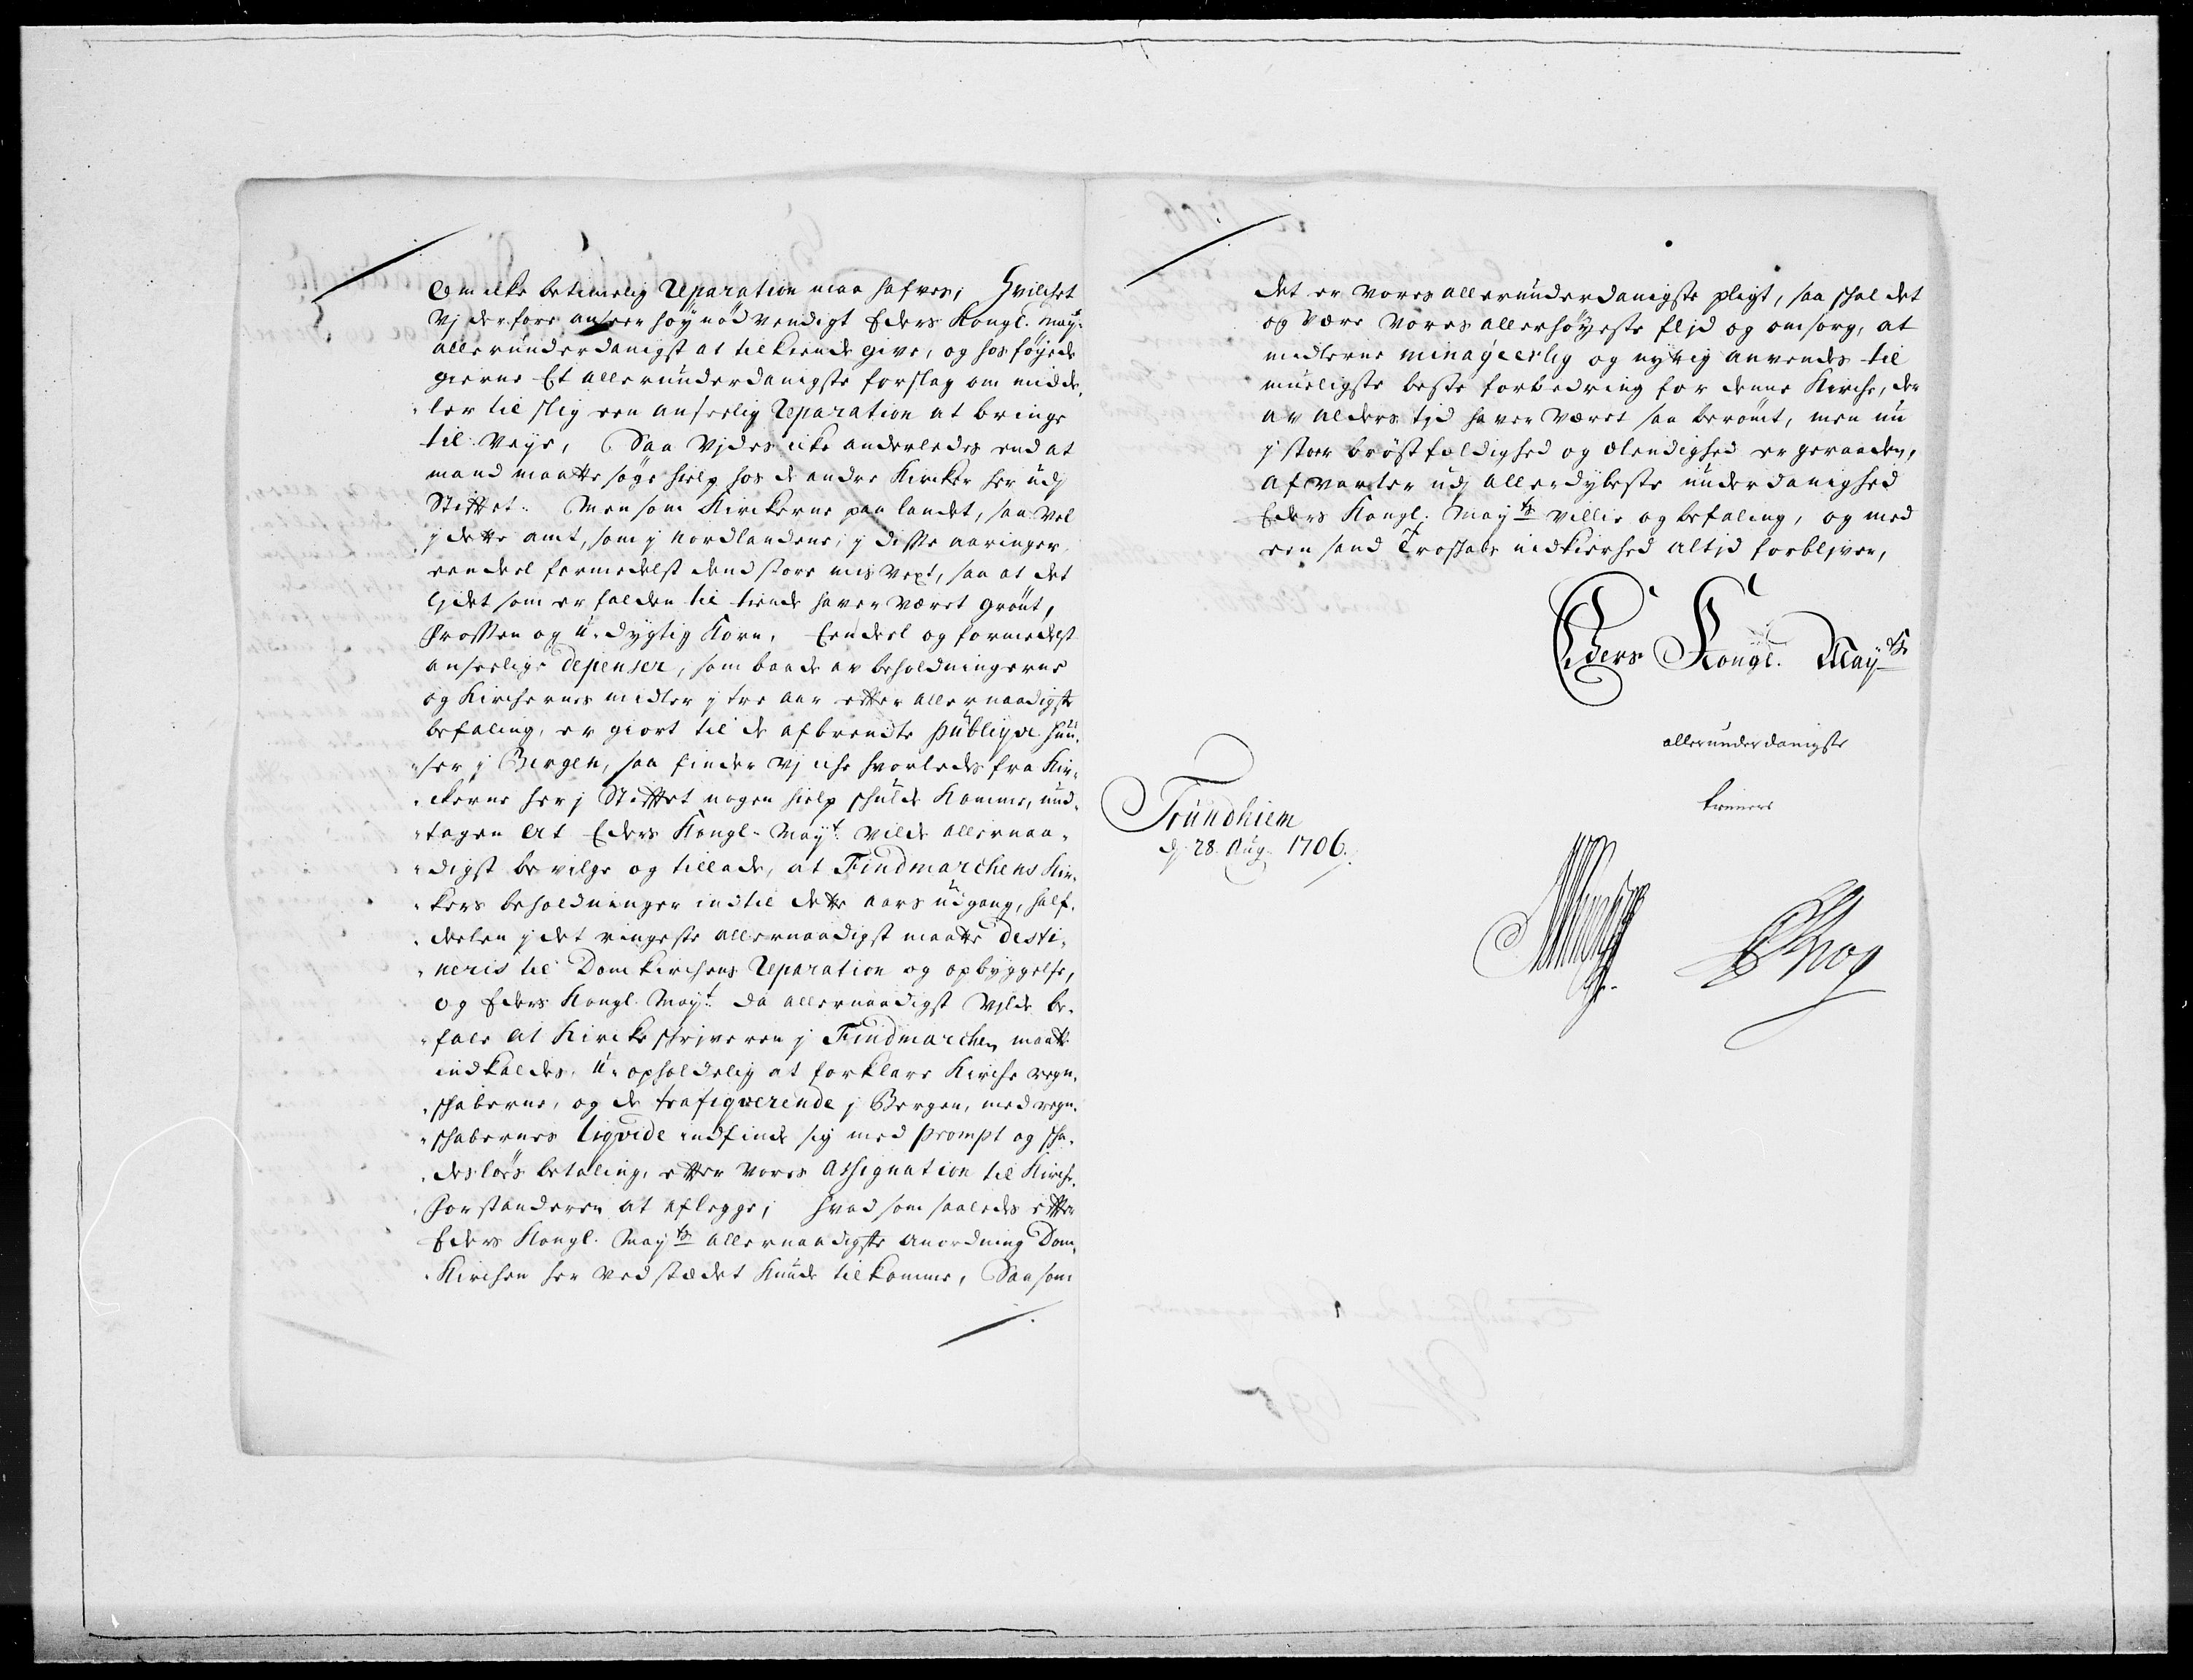 Om icke betimelig Reparation maa hafves; Hvilchet
Vj derfore anseer höynödvendigt Eders Kongl. Mayt:
allerunderdanigst at tilkiende give, og hos föyede
gierne Et allerunderdanigste forslag om midde,
„ler til slig een anseelig Reparation at bringe
til veye, Saa vides icke anderledes end at
mand maatte söge hielp hos de andre Kircker her udj
Stiftet. Men som Kirckerne paa landet, saa vel
j dette amt, som j Nordlandene, j disse aaringer,
eendeel formedelst dend store misvext, saa at det
lidet som er falden til tiende haver været grönt,
frossen og u-dygtig Korn. Eendeel og formedelst
anseelige depenser, som baade av beholdningerne
og Kirchernes midler j tre aar efter allernaadigste
befaling, er giort til de afbrendte publiqve huu,
„ser j Bergen, saa finder vj iche hvorledes fra Kir,
„ckerne her j Stiftet nogen hielp schulde komme, und,
„tagen At Eders Kongl. Mayt. vilde allernaa,
„digst bevilge og tillade, at Findmarchens Kir,
„kers beholdninger indtil dette aars udgang, half,
„deelen j det ringeste allernaadigst maatte desti,
„neris til Domkirchens Reparation og opbyggelse,
og Eders Kongl. Mayt. da allernaadigst vilde be,
„fale At Kirckeschriveren j Findmarchen maatte
indkaldes, u-opholdelig at forklare Kirche regn,
„schaberne, og de trafiqverende j Bergen, med regn,
„schabernes liqvide indfinde sig med prompt og scha,
„deslöes betaling, efter vores Assignation til Kirche,
„forstanderen at aflegge; hvad som saaledes efter
Eders Kongl. Mayts allernaadigste anordning Dom,
„Kirchen her ved stædet kunde tilkomme, Saasom
det er vores allerunderdanigste pligt, saa schal det
og være vores allerhöyeste flid og omsorg, at
midlerne minageerlig og nyttig anvendes til
mueligste beste forbedring for denne Kirche, der
av alders tid haver været saa berömt, men nu
j stoer bröstfældighed og Elendighed er geraaden,
afvarter udj allerdybeste underdanighed
Eders Kongl. Mayts villie og befaling, og med
een sand Troschabs nidkierhed altid forbliver,
Eders Kongl. Mayts
allerunderdanigste
tienere
Trundhiem
dj 28. Aug. 1706.
Krog